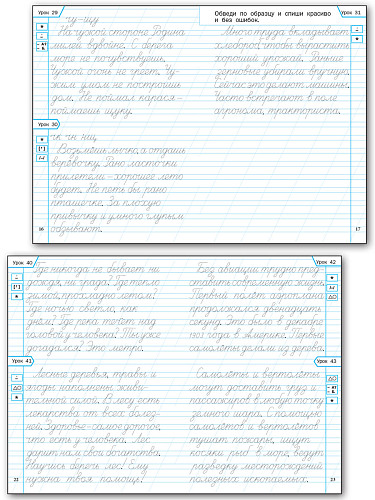 Урок 29
чу-щу
На чужой стороне Родина
милей вдвойне. С берега
море не почувствуешь.
Чужой огонь не греет. Чу-
жим умом не построишь
дом. Не поймал карася -
поймаешь щуку.
Урок 30
чк чн нщ
Возьмёшь лычко, а отдашь
верёвочку. Рано ласточки
прилетели - хорошее лето
будет. Не петь бы рано
пташечке. За плохую
привычку и умного глупым
обзывают.
16
Обведи по образцу и спиши красиво
и без ошибок.
Урок 31
Много труда вкладывает
хлебороб, чтобы вырастить
хороший урожай. Раньше
зерновые убирали вручную.
Сейчас это делают машины.
Часто встречают в поле
агронома, тракториста.
17
Урок 40
Где никогда не бывает ни
дождя, ни града? Где тепло
зимой, прохладно летом?
Где ночью светло, как
днём? Где река течёт над
головой у человека? Ты уже
догадался? Это метро.
Урок 41
Лесные деревья, травы и
ягоды наполнены живи-
тельной силой. В лесу есть
лекарства от всех болез-
ней. Здоровье - самое дорогое,
что есть у человека. Лес
дарит нам свои богатства.
Научись беречь лес! Ему
нужна твоя помощь!
22
Урок 42
Без авиации трудно пред-
ставить современную жизнь.
Первый полёт аэроплана
продолжался двенадцать
секунд. Это было в декабре
1903 года в Америке. Первые
самолёты делали из дерева.
Урок 43
Самолёты и вертолёты
могут доставить груз и
пассажиров в любую точку
земного шара. С помощью
самолётов и вертолётов
тушат пожары, ищут
косяки рыб в море, ведут
разведку месторождений
полезных ископаемых.
23